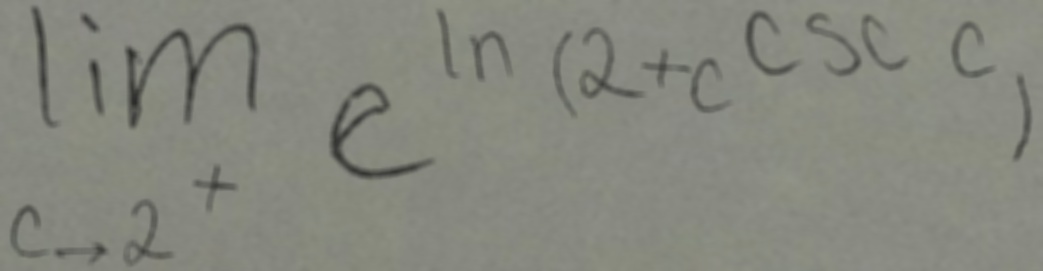 \lim_{c \to 2^+} e^{\ln(2+c^{\csc c})}